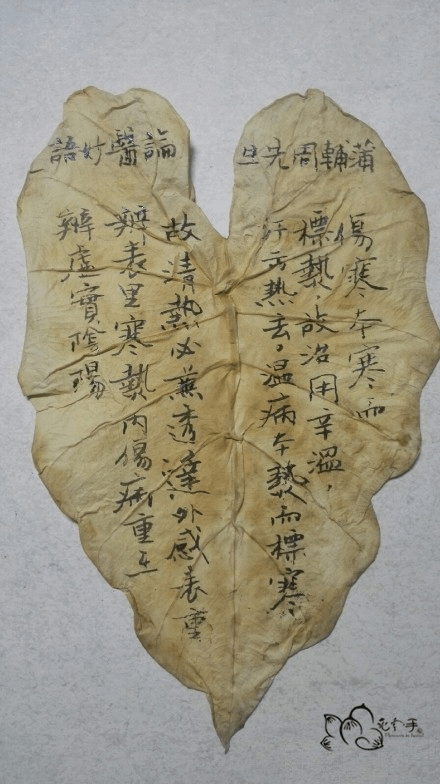 蒲輔周先生
論醫妙語
傷寒本寒而
標熱，故治用辛溫，
汗出熱去。溫病本熱而標寒，
故清熱必兼透達。外感表重
辨表里寒熱內傷病重在
辨虛實陰陽